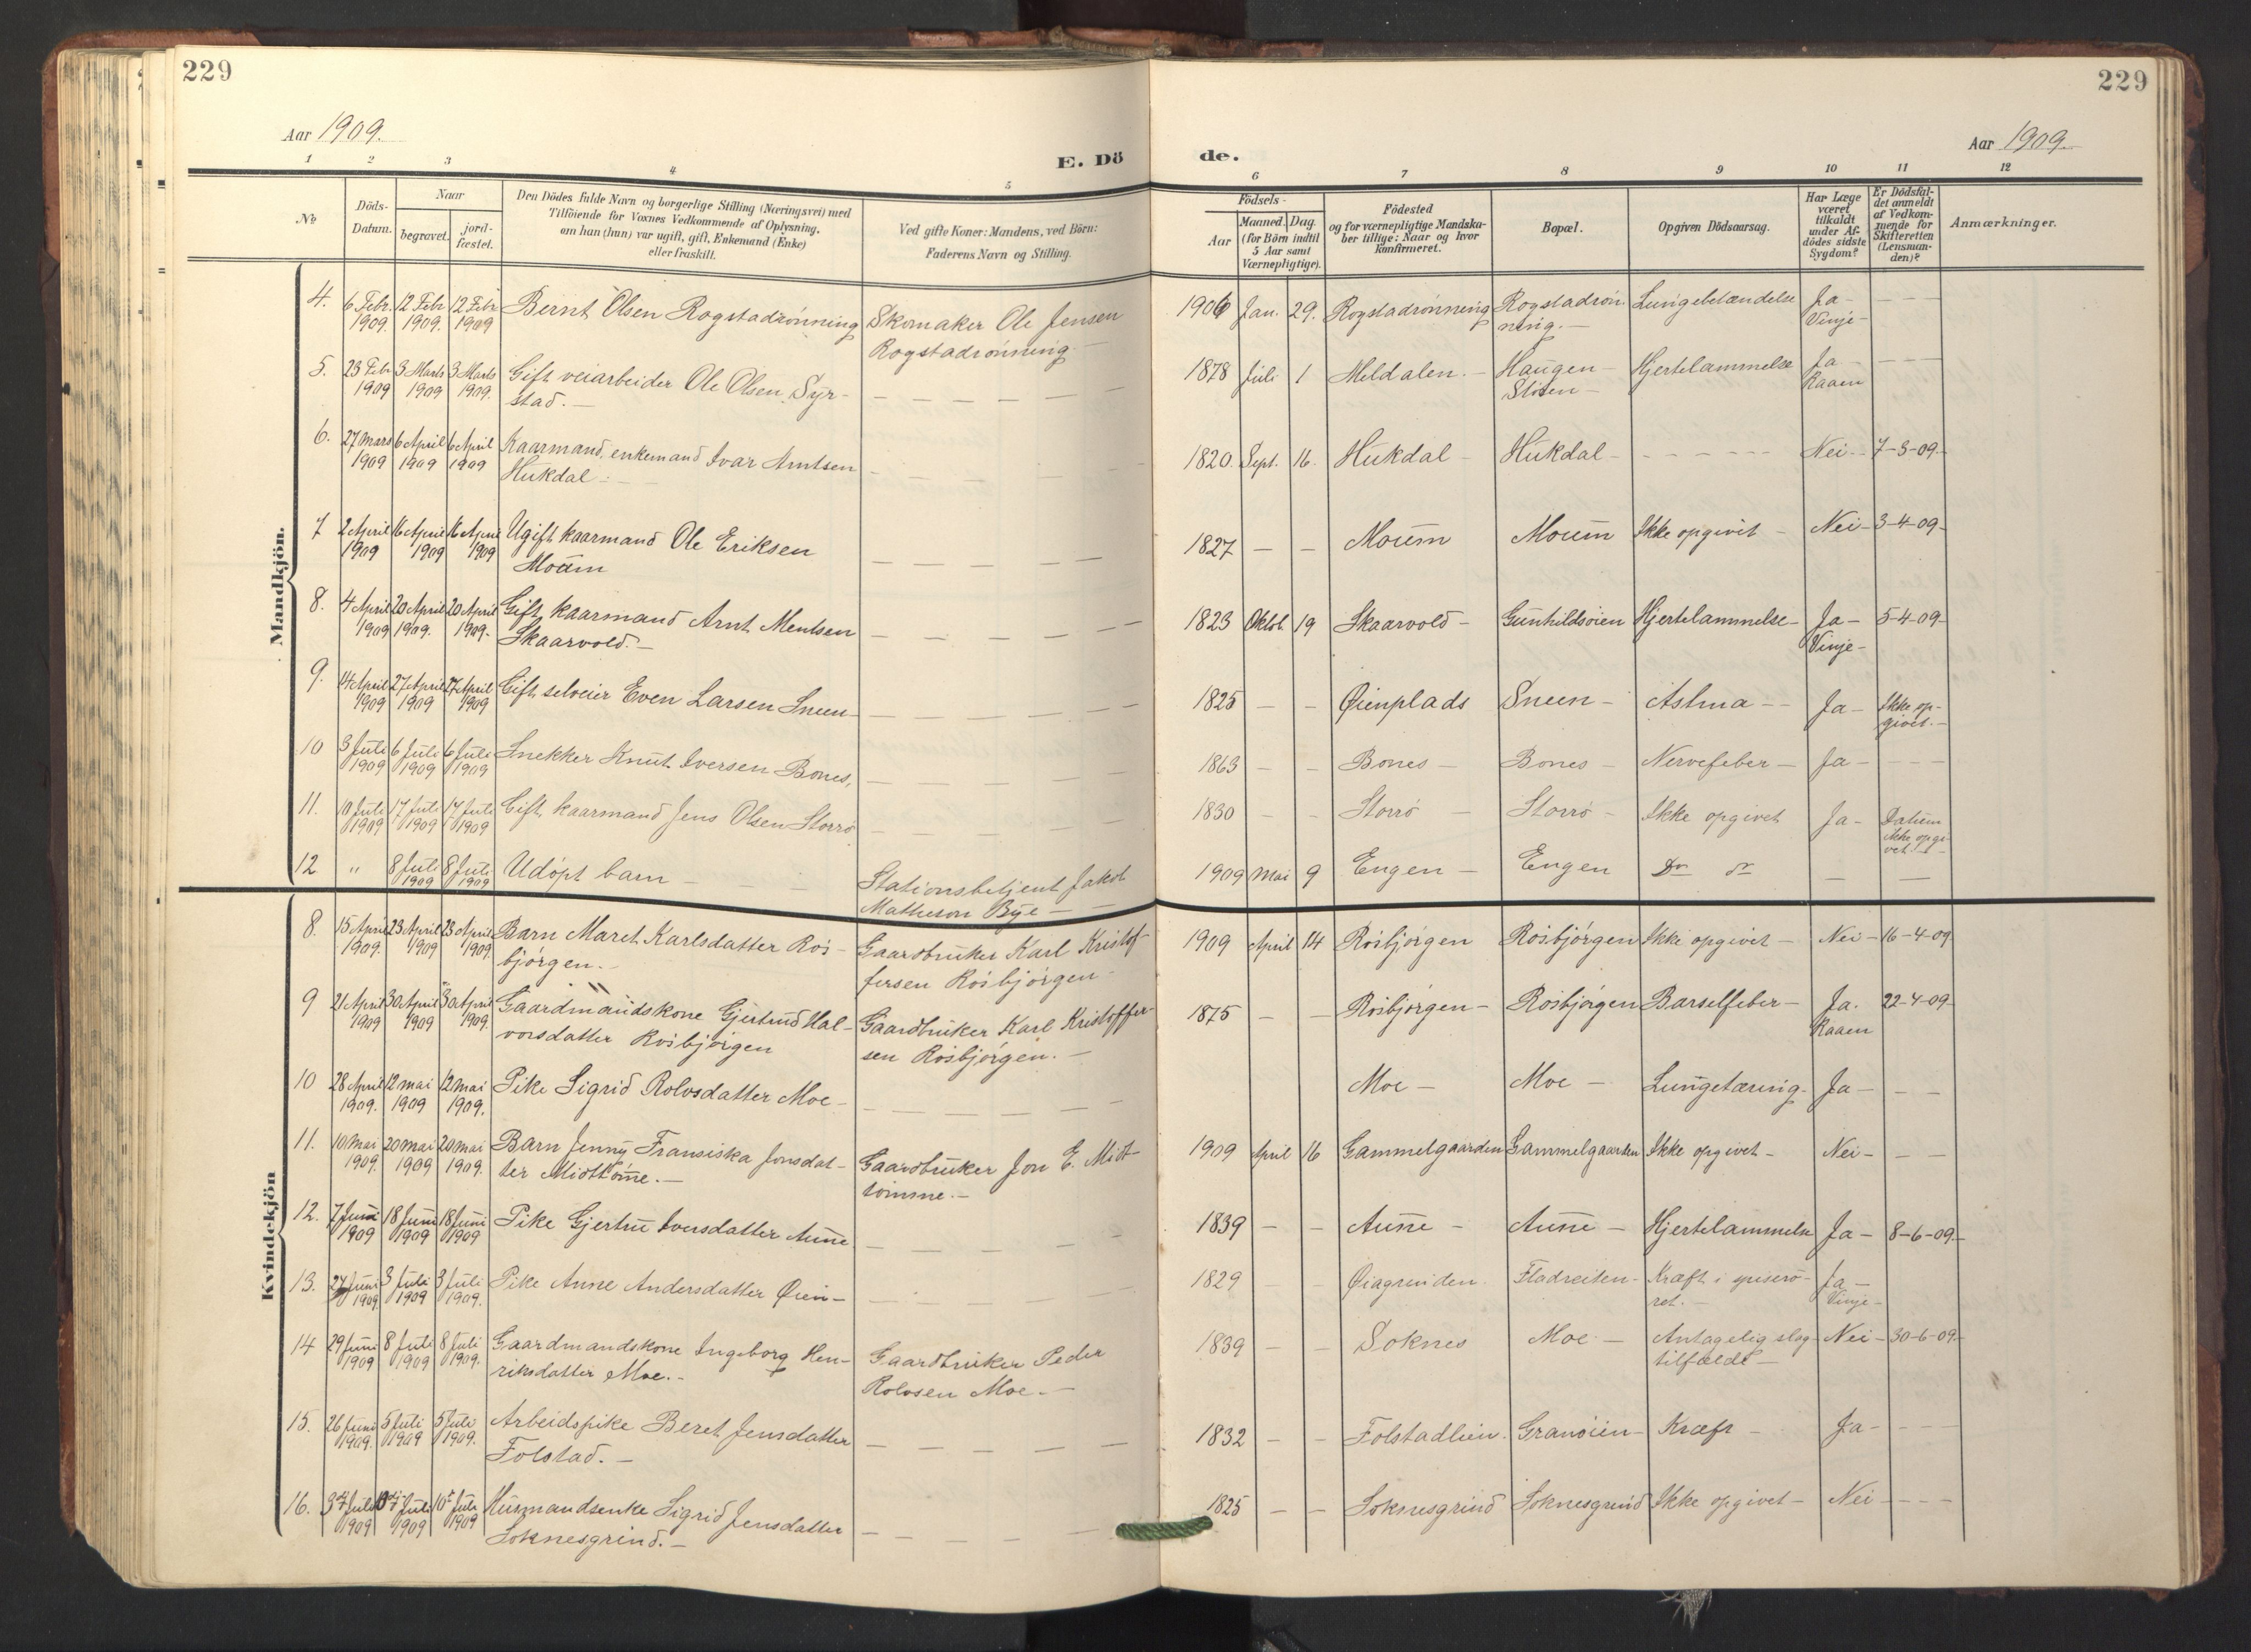 229
229
Aar 1909.
Aar 1909.
E. Dö
de.
1 2 3 4 5
6 7 8 9 10 11 12
No
Döds-
Datum.
Naar
begravet.
jord-
fæstet.
Den Dödes fulde Navn og borgerlige Stilling (Næringsvei) med
Tilföiende for Voxnes Vedkommende af Oplysning,
om han (hun) var ugift, gift, Enkemand (Enke)
eller fraskilt.
Ved gifte Koner: Mandens, ved Börn:
Faderens Navn og Stilling.
Födsels-
Aar
Maaned. Dag.
(for Börn indtil
5 Aar samt
Værnepligtige).
Födested
og for værnepligtige Mandska-
ber tillige: Naar og hvor
konfirmeret.
Bopæl.
Opgiven Dödsaarsag.
Har Læge
været
tilkaldt
under Af-
dödes sidste
Sygdom?
Er Dödsfal-
det anmeldt
af Vedkom-
mende for
Skifteretten
(Lensman-
den)?
Anmærkninger.
Mandkjön.
4. 6 Febr. 12 Febr 12 Febr Bernt Olsen Rogstadrönning Skomaker Ole Jensen 1906 Jan. 29. Rogstadrönning Rogstadrön- Lungebetændelse Ja -
1909. 1909. 1909 Rogstadrönning - ning. - Vinje -
5. 23 Febr 3 Marts 3 Marts Gift veiarbeider Ole Olsen Syr- 1878 Juli 1 Meldalen. - Haugen - Hjertelammelse Ja -
1909 1909 1909. stad. - Stören - Raaen
6. 27 Mars 6 April 6 April Kaarmand, enkemand Ivar Arntsen 1820. Sept. 16. Hukdal - Hukdal - Nei - 7-3-09 -
1909 1909 1909 Hukdal -
7 2 April 16 April 16 April Ugift kaarmand Ole Eriksen 1827 - - Moum Moum Ikke opgivet - Nei - 3-4-09 -
1909 1909 1909 Moum
8. 4 April 20 April 20 April Gift kaarmand Arnt Mentsen 1823 Oktob. 19 Skaarvold - Gunhildsöien Hjertelammelse - Ja - 5-4-09 -
1909 1909. 1909. Skaarvold. - Vinje -
9. 14 April 27 April 27 April Gift selveier Even Larsen Sneen 1825 - - Øienplads Sneen - Astma - - Ja - Ikke op-
1909 1909 1909 givet. -
10 3 Juli 6 Juli 6 Juli Snekker Knut Iversen Bones, 1863 - - Bones - Bones - Nervefeber - Ja -
1909 1909 1909
11. 10 Juli 17 Juli 17 Juli Gift kaarmand Jens Olsen Storrö 1830 - - Storrö - Storrö - Ikke opgivet Ja - Datum
1909 1909 1909 ikke opgi-
vet. -
12 " 8 Juli 8 Juli Udöpt barn - Stationsbetjent Jakob 1909 Mai 9 Engen - Engen Do do - -
1909 1909 Matheson Bye -
Kvindekjön
8. 15 April 23 April 23 April Barn Maret Karlsdatter Rös- Gaardbruker Karl Kristof- 1909 April 14 Rösbjörgen Rösbjörgen Ikke opgivet - Nei - 16-4-09
1909. 1909 1909. björgen. - fersen Rösbjörgen -
9 21 April 30 April 30 April Gaardmandskone Gjertrud Hal- Gaardbruker Karl Kristoffer- 1875 - - Rösbjörgen - Rösbjörgen Barselfeber - Ja. 22-4-09 -
1909 1909 1909. vorsdatter Rösbjörgen sen Rösbjörgen. - Raaen
10 28 April 12 mai 12 mai Pike Sigrid Rolvsdatter Moe - Moe - Moe - Lungetæring - Ja -
1909. 1909 1909.
11. 10 Mai 20 mai 20 mai Barn Jenny Fransiska Jonsdat- Gaardbruker Jon E. Midt- 1909 April 16 Gammelgaarden Gammelgaarden Ikke opgivet - Nei -
1909. 1909 1909. ter Midttömme. - tömme. -
12. 7 Juni 18 Juni 18 Juni Pike Gjertru Iversdatter Aune 1839 - - Aune - Aune - Hjertelammelse Ja - 8-6-09 -
1909 1909 1909
13. 27 Juni 3 Juli 3 Juli Pike Anne Andersdatter Øien - 1829 Øiagrinden. Fladreiten - Kræft i spiserö- Ja -
1909 1909 1909. ret. - Vinje -
14 29 Juni 8 Juli 8 Juli Gaardmandskone Ingeborg Hen- Gaardbruker Peder 1839 - - Soknes Moe - Antagelig slag- Nei - 30-6-09 -
1909 1909 1909. riksdatter Moe. - Rolvsen Moe. - tilfælde -
15. 26 Juni 5 Juli 5 Juli Arbeidspike Beret Jensdatter 1832 - - Folstadlien. Granöien - Kræft - Ja -
1909. 1909 1909. Folstad. -
16. 3 Juli 10 Juli 10 Juli Husmandsenke Sigrid Jensdatter 1825 - - Soknesgrind Soknesgrind Ikke opgivet - Nei -
1909 1909 1909 Soknesgrind. -